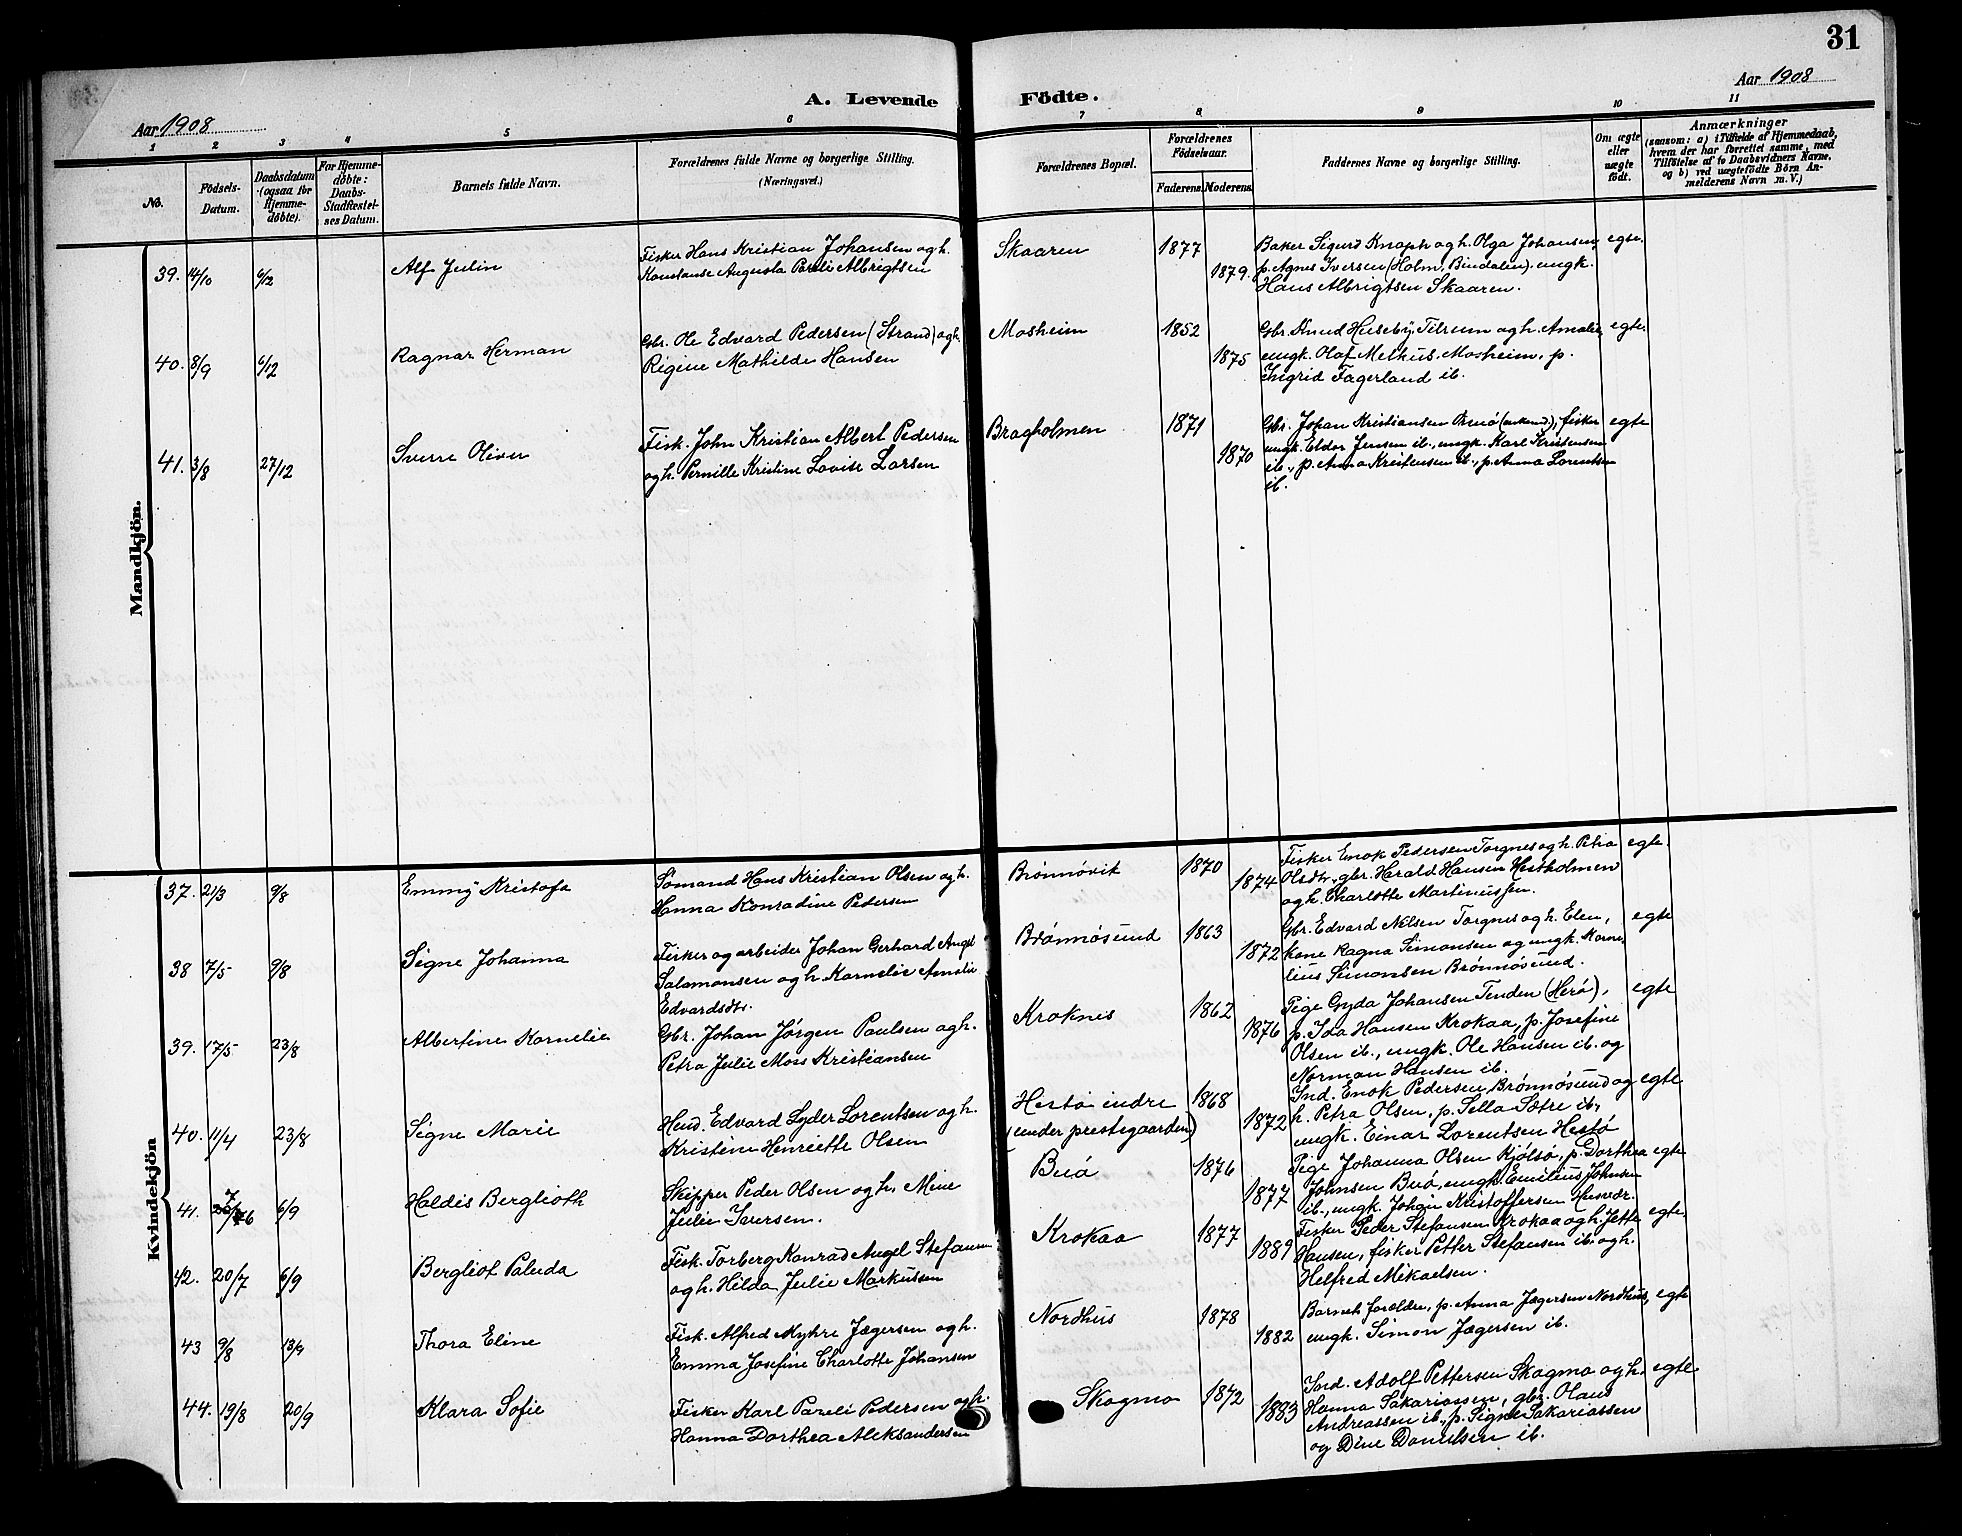 31
Aar 1908
A. Levende Födte.
Aar 1908
1 2 3 4 5 6 7 8 9 10 11
No.
Födsels-Datum.
Daabsdatum (ogsaa for Hjemme-döbte).
For Hjemme-döbte: Daabs-Stadfæstel-ses Datum.
Barnets fulde Navn.
Forældrenes fulde Navne og borgerlige Stilling.
(Næringsvei.)
Forældrenes Bopæl.
Forældrenes Födselsaar.
Faderens. Moderens.
Faddernes Navne og borgerlige Stilling.
Om ægte eller uægte født.
Anmærkninger
(saasom: a) i Tilfælde af Hjemmedaab,
hvem der har forrettet samme, med
Tilföielse af to Daabsvidners Navne,
og b) ved uægtefödte Börn An-
melderens Navn m. V.)
Mandkjön.
39. 14/10 6/12 Alf Julin
Fisker Hans Kristian Johansen og h.
Konstanse Augusta Pareli Albrigtsen
Skaaren 1877 1879.
Baker Sigurd Knoph og h. Olga Johansen,
p. Agnes Iversen (Holm, Bindalen), ungk.
Hans Albrigtsen Skaaren.
egte.
40. 8/9 6/12 Ragnar Herman
Gbr. Ole Edvard Pedersen (Strand) og h.
Regine Mathilde Hansen
Mosheim 1852 1875
Gbr. Knud Huseby, Tilrum og h. Amalie,
ungk. Olaf Melhus, Mosheim, p.
Ingrid Fagerland ib.
egte.
41. 3/8 27/12 Sverre Oliver
Fisk. John Kristian Albert Pedersen
og h. Pernille Kristine Lovise Larsen
Bragholmen 1871 1870
Gbr. Johan Kristiansen Buö (enkemd), fisker
ungk. Elder Jensen ib., ungk. Karl Kristensen
ib., p. Anna Kristensen ib., p. Anna Lorentsen
ib.
egte
Kvindekjön
37. 21/3 9/8 Emmy Kristofa
Sömand Hans Kristian Olsen og h.
Hanna Konradine Pedersen
Brönnövik 1870 1874
Fisker Enok Pedersen Torgnes og h. Petra
Olsdtr., gbr. Harald Hansen Hestholmen
og h. Charlotte Martinussen.
egte.
38 7/5 9/8 Signe Johanna
Fisker og arbeider Johan Gerhard Angel
Salamonsen og h. Kornelie Amalie
Edvardsdtr.
Brönnösund 1863 1872
Gbr. Edvard Nilsen Torgnes og h. Elen,
kone Ragna Simonsen og ungk. Korne-
lius Simonsen Brönnösund.
egte
39. 17/5 23/8 Albertine Kornelie
Gbr. Johan Jörgen Paulsen og h.
Petra Julie Moss Kristiansen
Kroknes 1862 1876
Pige Gyda Johansen Tenden (Herö),
p. Ida Hansen Krokaa, p. Josefine
Olsen ib., ungk. Ole Hansen ib. og
Norman Hansen ib.
egte
40. 11/4 23/8 Signe Marie
Hmd. Edvard Lyder Lorentsen og h.
Kristine Henriette Olsen
Hestö indre
(under prestegaarden)
1868 1872
Ind. Enok Pedersen Brönnösund og
h. Petra Olsen, p. Sella Sætre ib.,
ungk. Einar Lorentsen Hestö
egte
41. 6/9 Haldis Berglioth
Skipper Peder Olsen og h. Mine
Julie Iversen.
Buö 1876 1877
Pige Johanna Olsen Kjölsö, p. Dorthea
Johnsen Buö, ungk. Emilius Johnsen
ib., ungk. Johan Kristoffersen Husvær.
egte
42. 20/7 6/9 Bergliot Paluda
Fisk. Torberg Konrad Angel Stefansen
og h. Hilda Julie Markussen
Krokaa 1877 1889
Fisker Peder Stefansen Krokaa og h. Jette
Hansen, fisker Petter Stefansen ib. og h.
Helfred Mikaelsen.
egte.
43 9/8 13/9 Thora Eline
Fisk. Alfred Myhre Jægersen og h.
Emma Josefine Charlotte Johansen
Nordhus 1878 1882
Barnets forældre, p. Anna Jægersen Nordhus,
ungk. Simon Jægersen ib.
egte
44. 19/8 20/9 Klara Sofie
Fisker Karl Pareli Pedersen og h.
Hanna Dorthea Aleksandersen
Skogmo 1872 1883
Ind. Adolf Pettersen Skogmo og h.
Hanna Sakariassen, gbr. Olaus
Andreassen ib., p. Signe Sakariassen
og Dine Danielsen ib.
egte